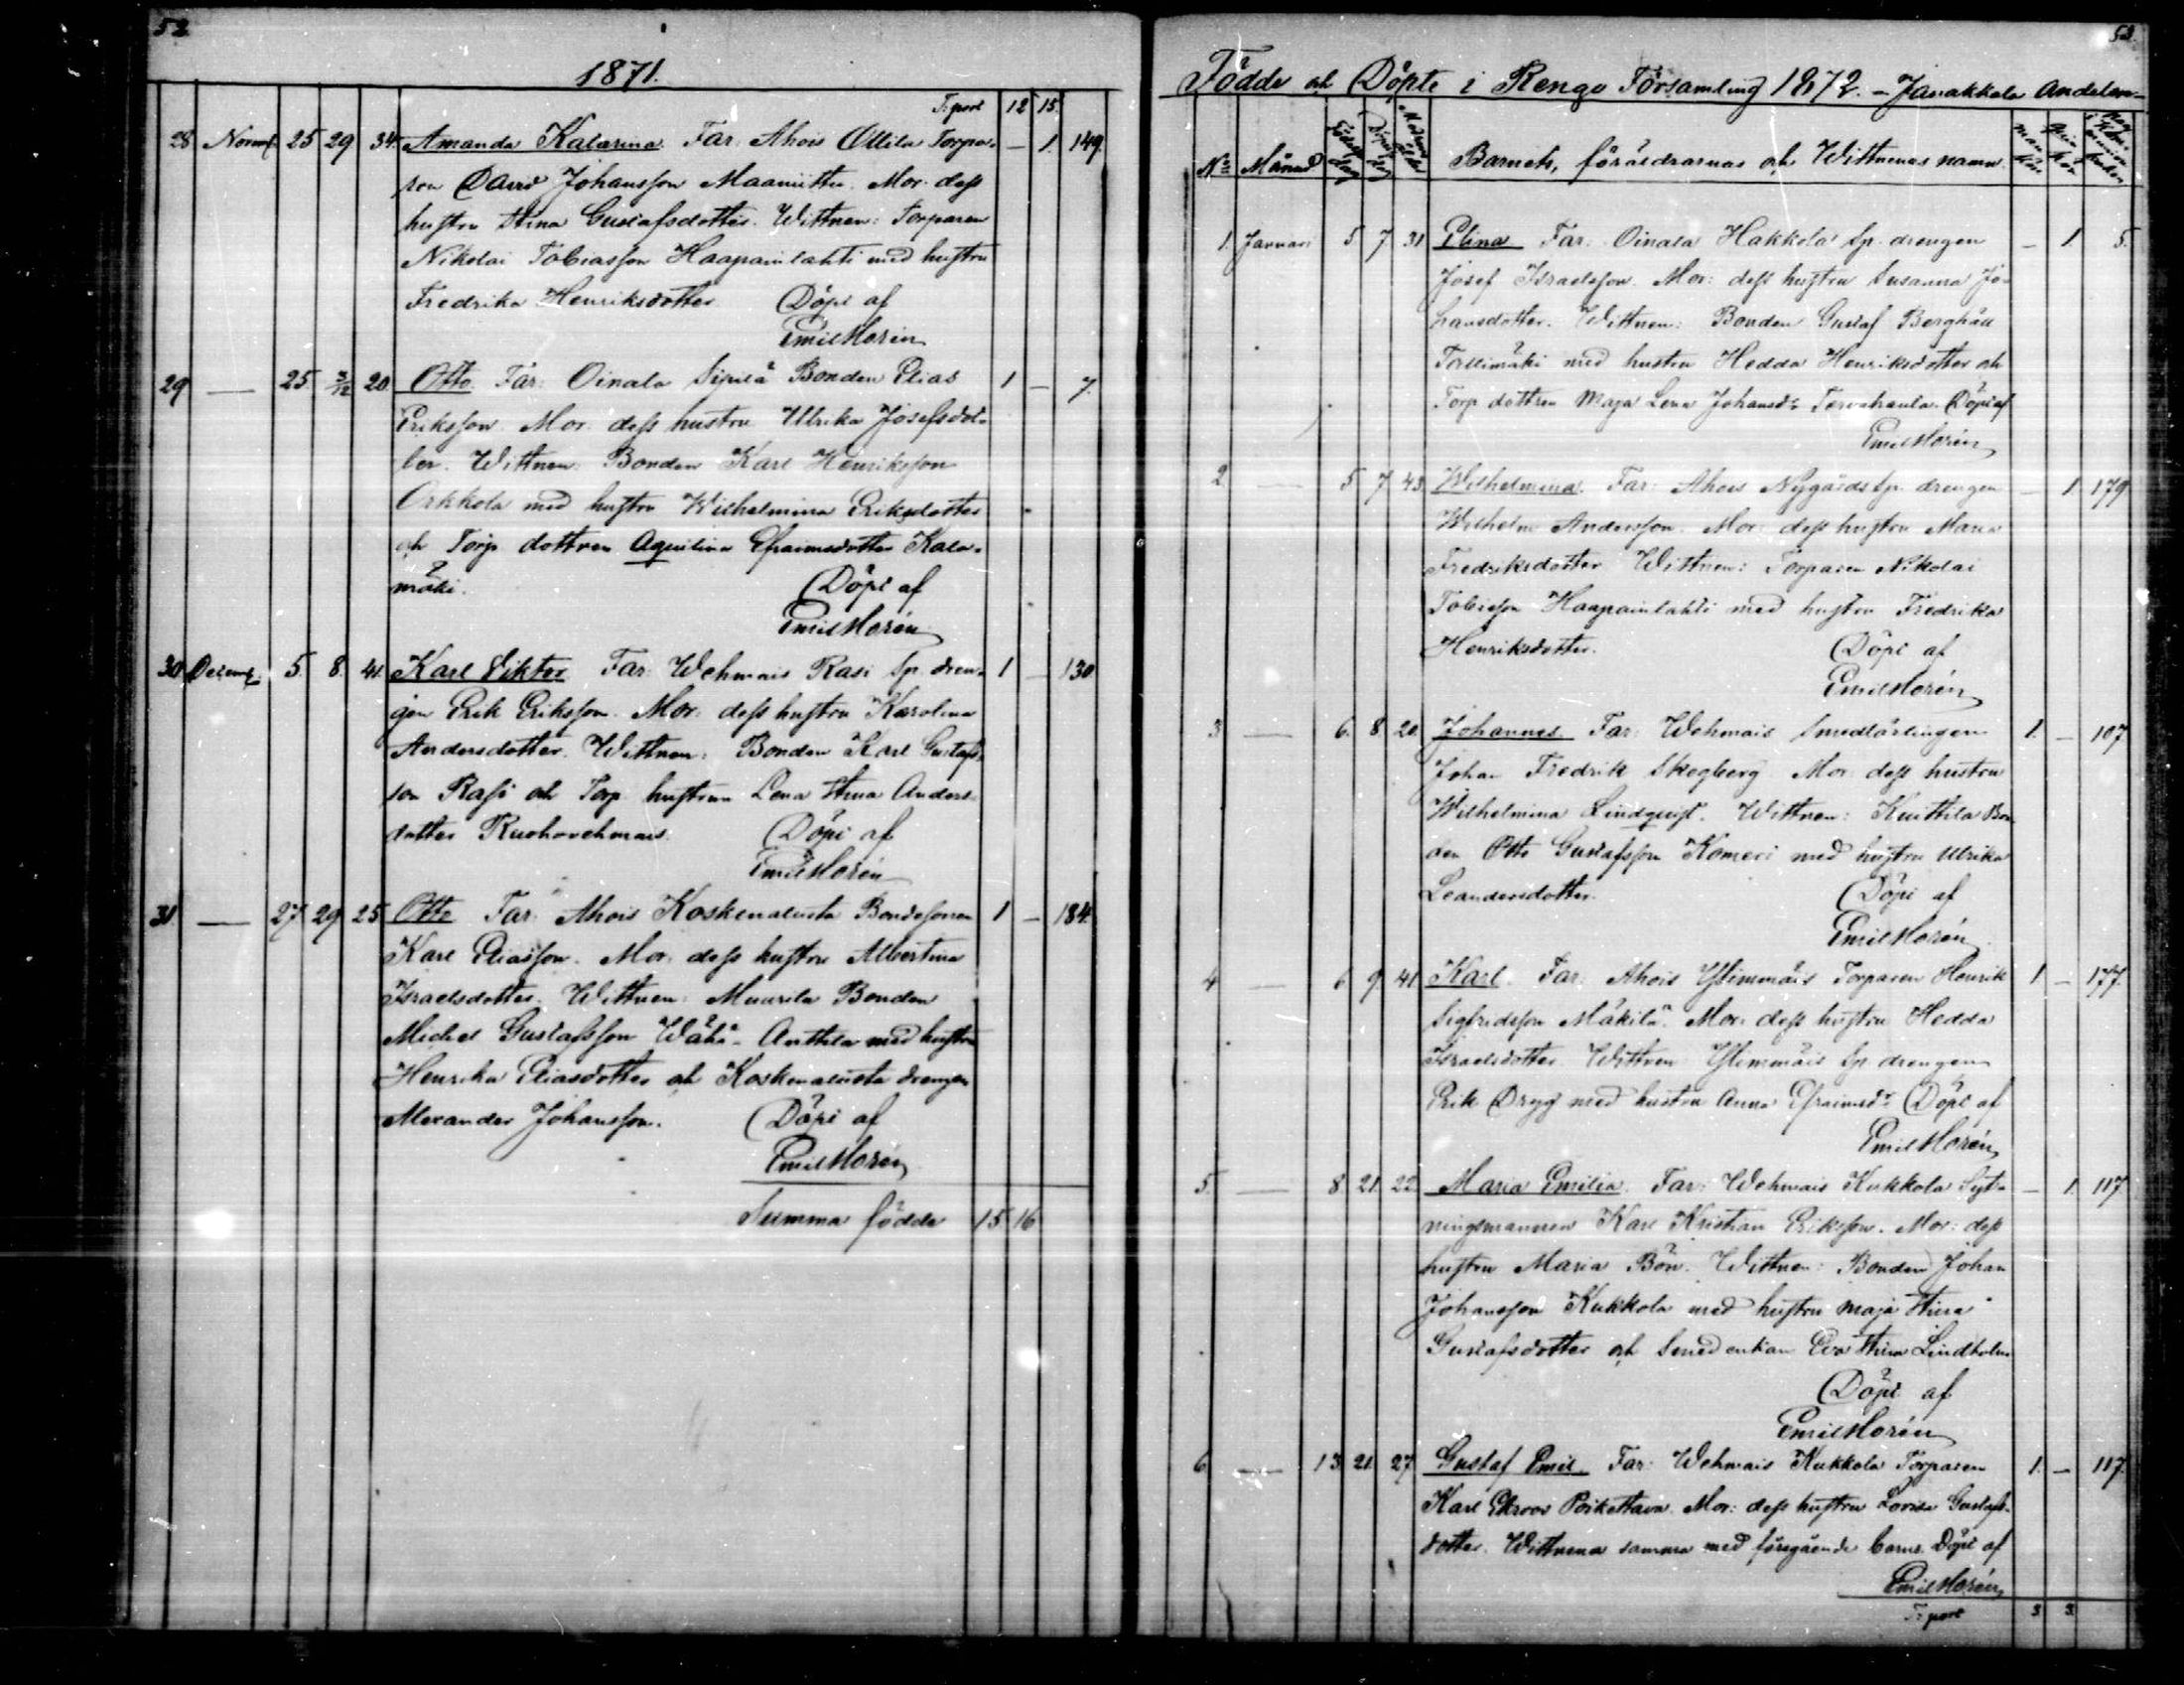 52
1871.
Tr:port 12 15.
28 Novemb. 25 29 34. Amanda Katarina. Far: Ahois Ollila Torpa-
ren David Johansson Maaniittu. Mor: dess
hustru Stina Gustafsdotter. Wittnen: Torparen
Nikolai Tobiasson Haapainlahti med hustru
Fredrika Henriksdotter. Döpt af
Emil Horén
— 1. 149.
29 — 25 3/12 20 Otto. Far: Oinala Sipilä Bonden Elias 1 — 7.
Eriksson. Mor: dess hustru Ulrika Josefsdot-
ter. Wittnen: Bonden Karl Henriksson
Orkkola med hustru Wilhelmina Eriksdotter
och Torp. dottren Aquilina Efraimsdotter Kala-
mäki. Döpt af
Emil Horén
30 Decemb. 5. 8. 41. Karl Viktor. Far: Wehmais Rasi Sp. dren- 1 — 130
gen Erik Eriksson. Mor: dess hustru Karolina
Andersdotter. Wittnen: Bonden Karl Gustafs-
son Rasi och Torp. hustrun Lena Stina Anders-
dotter Ruohovehmas. Döpt af
Emil Horén
31. — 27 29 25 Otto. Far: Ahois Koskenalusta Bondesonen 1 — 184.
Karl Eliasson. Mor: dess hustru Albertina
Israelsdotter. Wittnen: Muurila Bonden
Michel Gustafsson Wähä-Anttila med hustru
Henrika Eliasdotter och Koskenalusta drengen
Alexander Johansson. Döpt af
Emil Horén
Summa födda 15 16
53.
Födde och Döpte i Rengo Församling 1872. – Janakkala Andelen –
No Månad Födelse dag Döpelse dag Modrens ålder Barnets, föräldrarnas och Wittnenas namn. man kön qvin kön
1. Januari 5. 7 31 Elina. Far: Oinala Hakkola Sp. drengen — 1. 5.
Josef Israelsson. Mor: dess hustru Susanna Jo-
hansdotter. Wittnen: Bonden Gustaf Berghäll
Tallimäki med hustru Hedda Henriksdotter och
Torp. dottren Maja Lena Johansdr Tervahauta. Döpt af
Emil Horén
2 — 5 7 43 Wilhelmina. Far: Ahois Nygårds Sp. drengen — 1. 179
Wilhelm Andersson. Mor: dess hustru Maria
Fredriksdotter. Wittnen: Torparen Nikolai
Tobiasson Haapainlahti med hustru Fredrika
Henriksdotter. Döpt af
Emil Horén
3 — 6. 8. 20. Johannes. Far: Wehmais Smedlärlingen 1. — 107
Johan Fredrik Skogberg. Mor: dess hustru
Wilhelmina Lindqvist. Wittnen: Kuittila Bon-
den Otto Gustafsson Komeri med hustru Ulrika
Leandersdotter. Döpt af
Emil Horén
4 — 6 9 41 Karl. Far: Ahois Ylimmäis Torparen Henrik 1 — 177.
Sigfridsson Mäkilä. Mor: dess hustru Hedda
Israelsdotter. Wittnen: Ylimmäis Sp. drengen
Erik Dryg med hustru Anna Efraimsdr Döpt af
Emil Horén
5. — 8. 21. 22. Maria Emilia. Far: Wehmais Kukkola Syt- — 1. 117
ningsmannen Karl Kristian Eriksson. Mor: dess
hustru Maria Bön. Wittnen: Bonden Johan
Johansson Kukkola med hustru Maja Stina
Gustafsdotter och Smedenkan Eva Stina Lindholm
Döpt af
Emil Horén
6. — 13 21. 27 Gustaf Emil. Far: Wehmais Kukkola Torparen 1. — 117.
Karl Ekroos Mor: dess hustru Lovisa Gustafs-
dotter. Wittnena samma med föregående barns. Döpt af
Emil Horén
Tr:port 3 3.